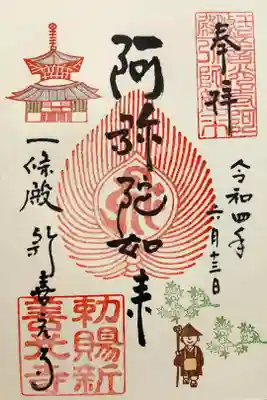 奉拝
令和四年
六月十三日
阿弥陀如来
一條殿
新善光寺
勅賜新
善光寺